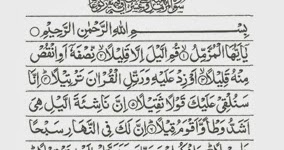 بِسْمِ اللهِ الرَّحْمٰنِ الرَّحِيْمِ
يٰۤاَيُّهَا الْمُزَّمِّلُ ۙ قُمِ الَّيْلَ اِلَّا قَلِيْلًا ۙ نِّصْفَهٗۤ اَوِ انْقُصْ
مِنْهُ قَلِيْلًا ۙ اَوْ زِدْ عَلَيْهِ وَرَتِّلِ الْقُرْاٰنَ تَرْتِيْلًا ؕ اِنَّا
سَنُلْقِيْ عَلَيْكَ قَوْلًا ثَقِيْلًا اِنَّ نَاشِئَةَ الَّيْلِ هِيَ
اَشَدُّ وَطْاً وَّاَقْوَمُ قِيْلًا ؕ اِنَّ لَكَ فِي النَّهَارِ سَبْحًا